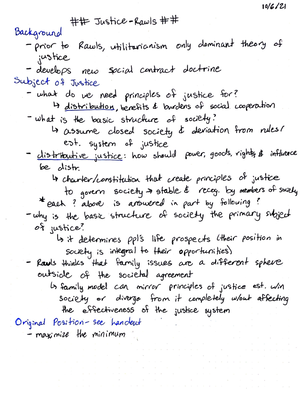 10/6/21
## Justice - Rawls ##
Background
- prior to Rawls, utilitarianism only dominant theory of
justice
- develops new social contract doctrine
Subject of Justice
- what do we need principles of justice for?
↳ distribution, benefits & burdens of social cooperation
- what is the basic structure of society?
↳ assume closed society & deviation from rules/
est. system of justice
- distributive justice: how should power, goods, rights, & influence
be distr.
↳ charter/constitution that create principles of justice
to govern society → stable & recog. by members of society
* each ? above is answered in part by following ?
- why is the basic structure of society the primary subject
of justice?
↳ it determines ppl's life prospects (their position in
society is integral to their opportunities)
- Rawls thinks that family issues are a different sphere
outside of the societal agreement
↳ family model can mirror principles of justice est. w/in
society or diverge from it completely w/out affecting
the effectiveness of the justice system
Original Position - see handout
- maximize the minimum